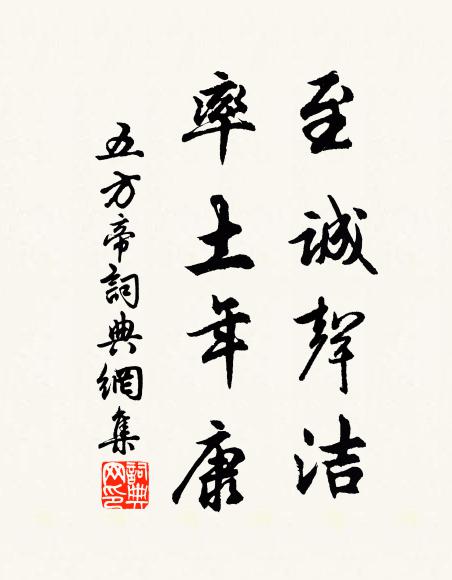 至誠聲洁
率土年康
五方帝詞典網集
詞典网印